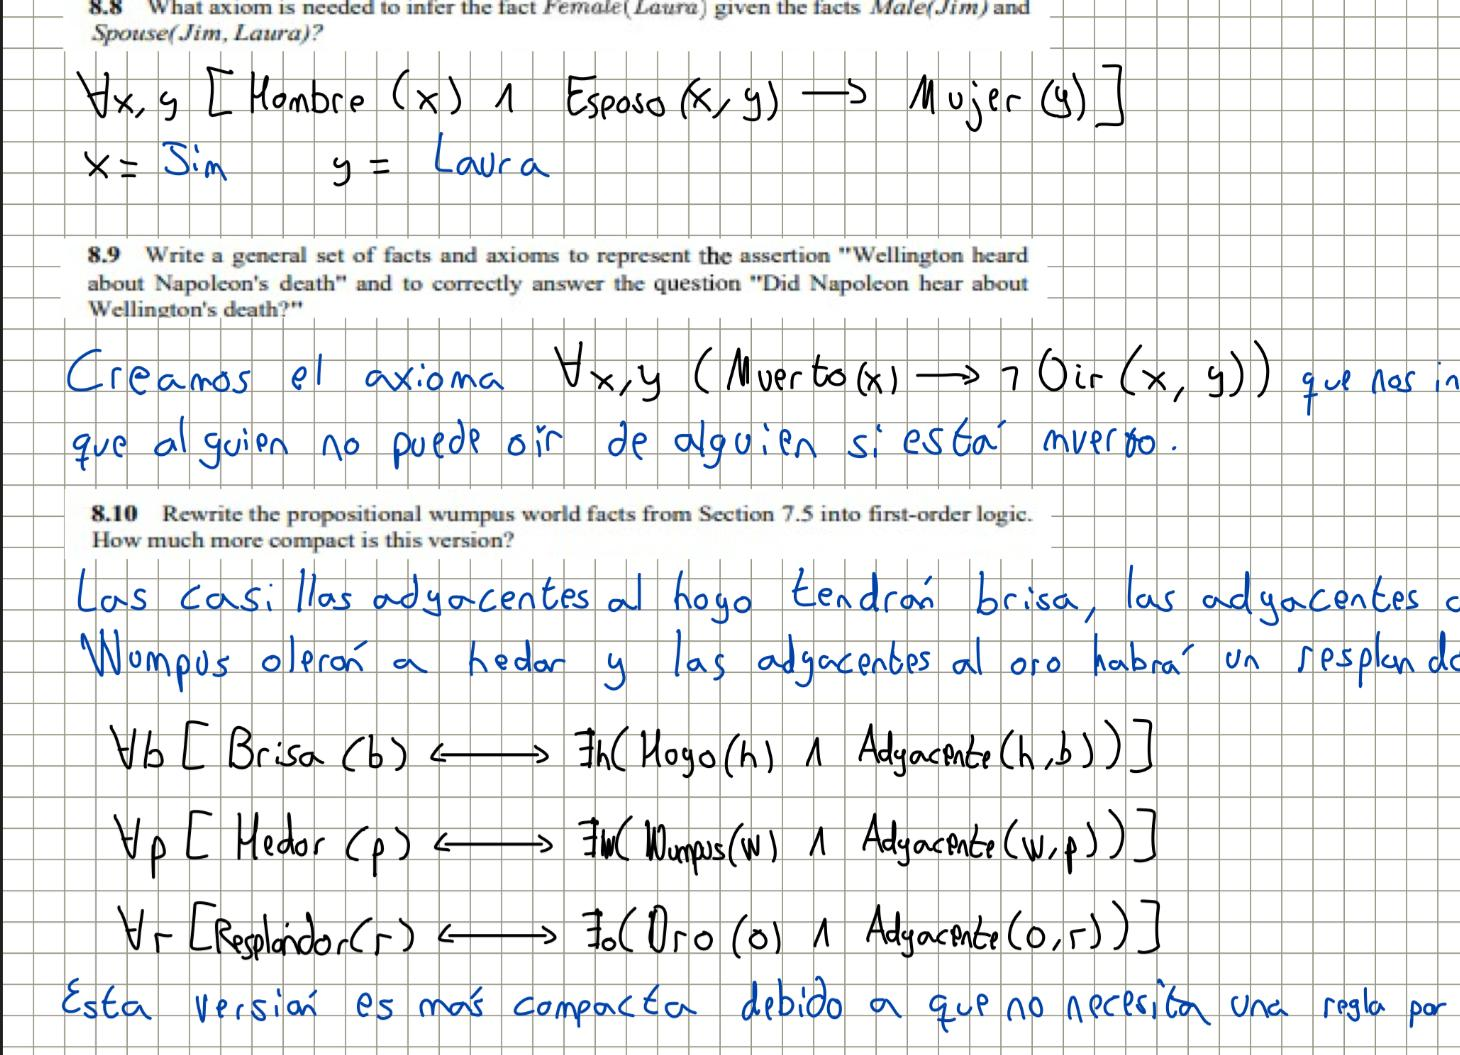 8.8 What axiom is needed to infer the fact Female(Laura) given the facts Male(Jim) and
Spouse(Jim, Laura)?
∀x, y [Hombre (x) ∧ Esposo (x, y) → Mujer (y)]
x = Jim y = Laura
8.9 Write a general set of facts and axioms to represent the assertion "Wellington heard
about Napoleon's death" and to correctly answer the question "Did Napoleon hear about
Wellington's death?"
Creamos el axioma ∀x,y (Muerto(x) → ¬ Oir (x, y)) que nos in
que alguien no puede oír de alguien si está muerto.
8.10 Rewrite the propositional wumpus world facts from Section 7.5 into first-order logic.
How much more compact is this version?
Las casillas adyacentes al hoyo tendrán brisa, las adyacentes
Wumpus olerán a hedor y las adyacentes al oro habrá un resplando
∀b [Brisa (b) ⟷ ∃h(Hoyo(h) ∧ Adyacente(h,b))]
∀p [Hedor (p) ⟷ ∃w(Wumpus(w) ∧ Adyacente(w,p))]
∀r [Resplandor(r) ⟷ ∃o(Oro (o) ∧ Adyacente(o,r))]
Esta versión es más compacta debido a que no necesita una regla por